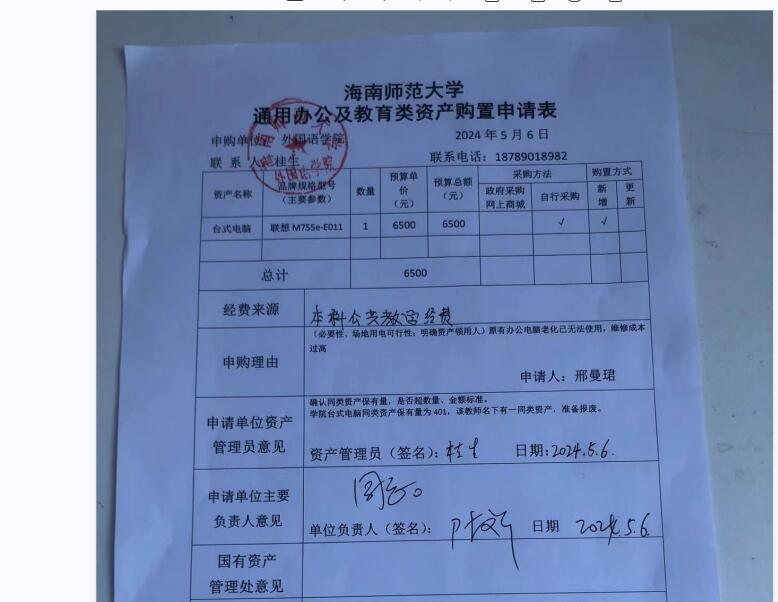 海南师范大学
通用办公及教育类资产购置申请表
申购单位：外国语学院
2024 年 5 月 6 日
联 系 人：桂生
联系电话：18789018982
资产名称 品牌规格型号（主要参数） 数量 预算单价（元） 预算总额（元） 采购方法 购置方式
政府采购网上商城 自行采购 新增 更新
台式电脑 联想 M755e-E011 1 6500 6500 √ √
总计 6500
经费来源 本科公共教育经费
申购理由
（必要性、场地用电可行性；明确资产领用人）原有办公电脑老化已无法使用，维修成本
过高
申请人：邢曼珺
申请单位资产
管理员意见
确认同类资产保有量，是否超数量、金额标准。
学院台式电脑同类资产保有量为 401，该教师名下有一同类资产，准备报废。
资产管理员（签名）：桂生 日期：2024.5.6.
申请单位主要
负责人意见
同意。
单位负责人（签名）： 日期 2024.5.6
国有资产
管理处意见